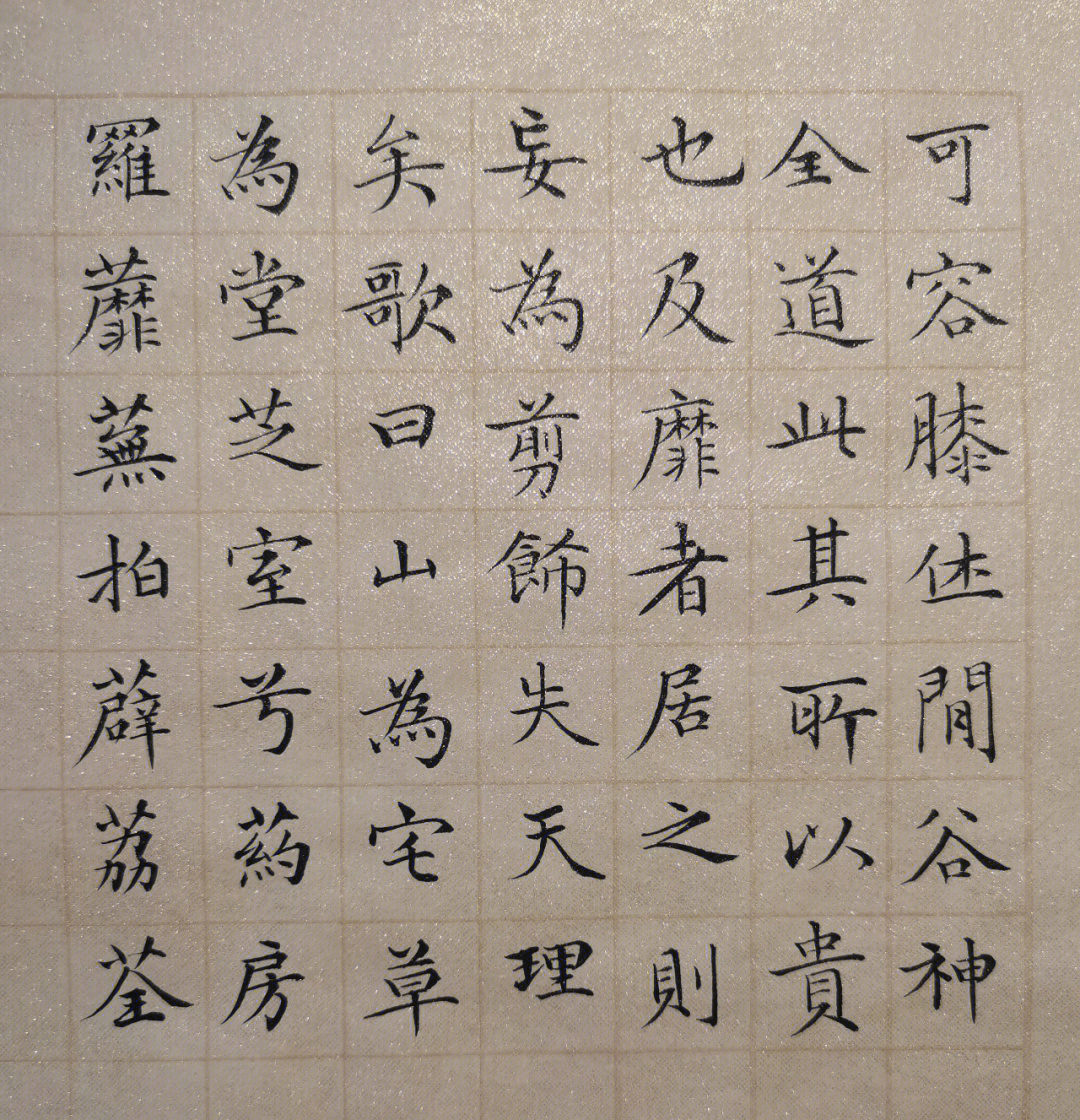 可容膝休閒谷神
全道此其所以貴
也及靡者居之則
妄為剪飾失天理
矣歌曰山為宅草
為堂芝室兮葯房
羅蘼蕪拍薜荔荃